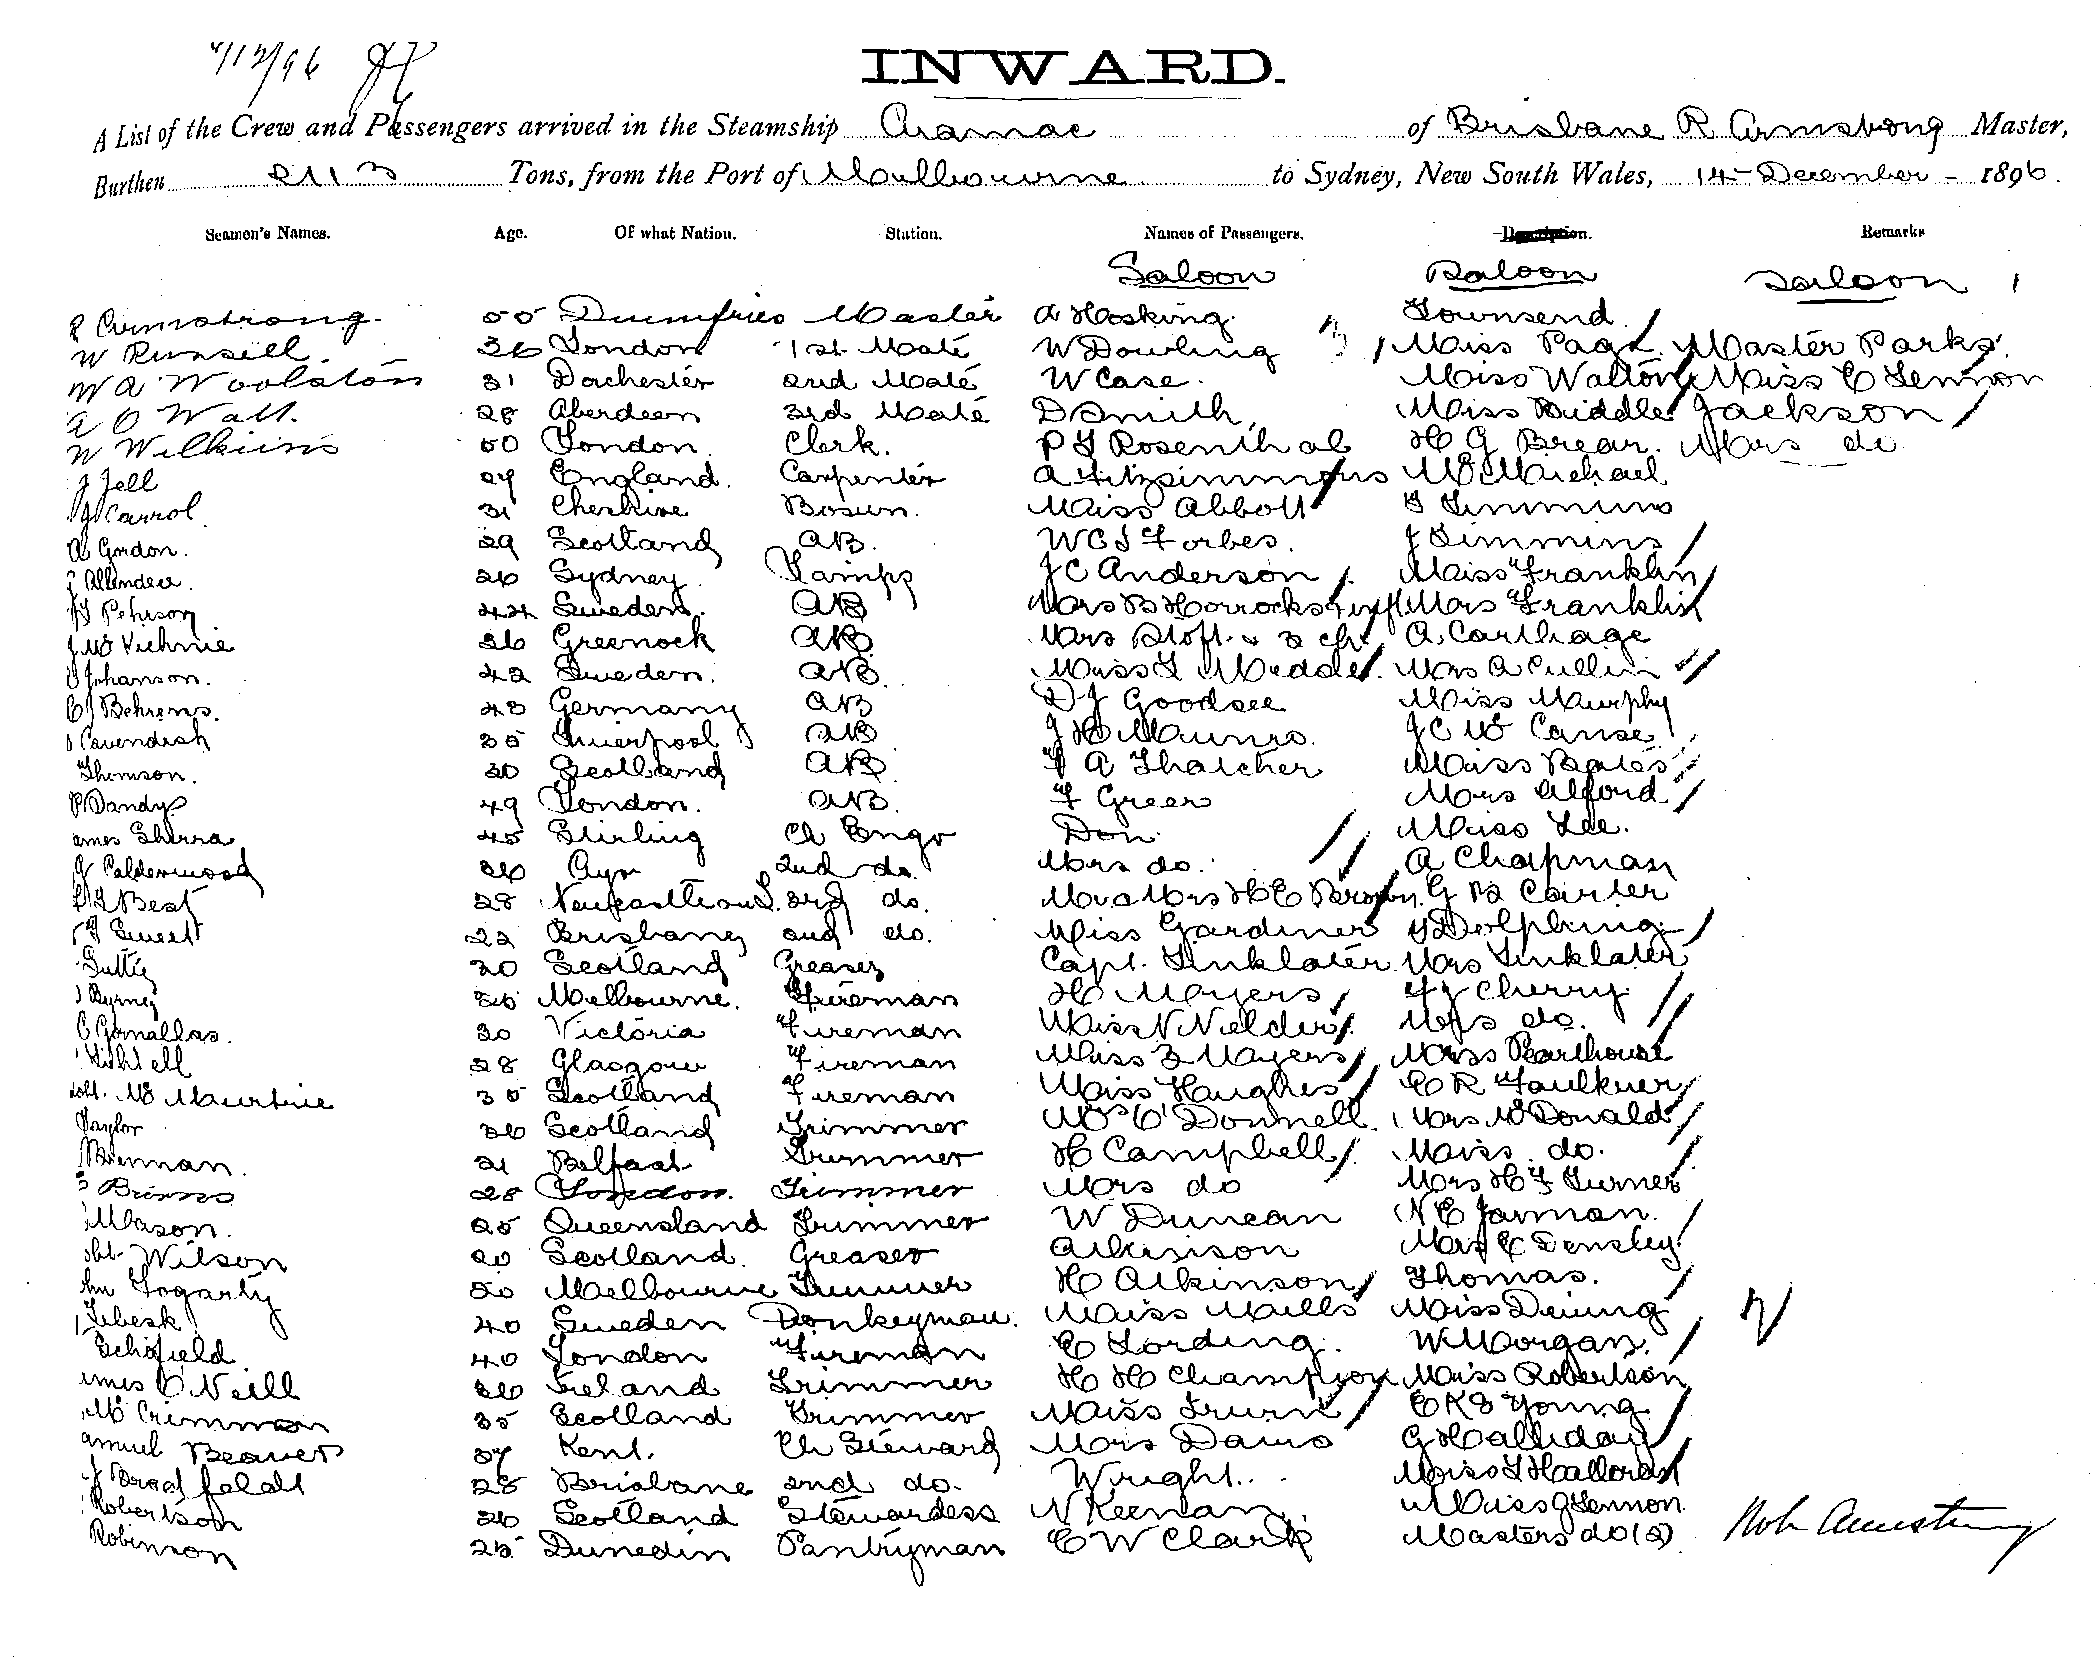 INWARD.
A List of the Crew and Passengers arrived in the Steamship Aramac of Brisbane R Armstrong Master,
Burthen 2113 Tons, from the Port of Melbourne to Sydney, New South Wales, 14 December - 1896.
Seamen's Names. Age. Of what Nation. Station. Names of Passengers. Description. Remarks
Saloon Saloon Saloon
R Armstrong 55 Dumfries Master A Hosking Townsend
W Russell. 36 London 1st Mate W Dowling Miss Page Master Parks
W A Woolston 31 Dorchester 2nd Mate W Case. Miss Walton Miss C Lennon
A O Watt. 28 Aberdeen 3rd Mate D Smith, Miss Biddle Jackson
W Wilkins 50 London Clerk. P J Rosenthal H G Brear. Mrs do
J Jell 27 England. Carpenter A Fitzsimmons McMichael
J Carrol 31 Cheshire Bosun. Miss Abbott Timmins
A Gordon. 29 Scotland AB. W C J Forbes. J Simmins
J Allendea 26 Sydney Lamps J C Anderson Miss Franklin
Pehrson 44 Sweden. AB Mrs B Horrocks & inft Mrs Franklin
J McVichnie 36 Greenock AB Mrs Stott & 3 ch. A. Carthage
Johanson. 42 Sweden. AB Miss L Meddle Mrs A Cullin
C J Behrens. 43 Germany AB D J Goodsee Miss Murphy
Cavendish 35 Liverpool AB J H Munro. J C McCanse
Thomson. 30 Scotland AB F A Thatcher Miss Bates
P Dandy 49 London. AB. F Greer Mrs Alford
ames Sherra 45 Stirling Ch Engr Don Miss Lee.
Calderwood 36 Ayr 2nd do. Mrs do. A Chapman
Best 28 Newcastle 3rd do. Mr & Mrs H C Brown. G B Carter
Sweet 22 Brisbane 2nd do. Miss Gardiner Dolphing
Suttie 30 Scotland Greaser Capt. Linklater Mrs Linklater
Byrne 36 Melbourne. Fireman H Mayers Cherry
C Gomallas. 30 Victoria Fireman Miss N Nielder Mrs do.
28 Glasgow Fireman Miss Z Mayers Miss Pearthouse
Robt. McMurtrie 35 Scotland Fireman Miss Hughes C R Faulkner
Taylor 36 Scotland Trimmer O'Donnell. Mrs McDonald
Brennan. 31 Belfast Trimmer H Campbell Miss do.
Brims 28 London. Trimmer Mrs do Mrs H F Turner
Mason. 25 Queensland Trimmer W Duncan N C Jarman.
Wilson 20 Scotland. Greaser Atkinson Mrs C Densley
Fogarty 30 Melbourne Trimmer H Atkinson Thomas.
Lebesk 40 Sweden Donkeyman. Miss Mills Miss Deining
Schofield 40 London Fireman C Lording. W Morgan.
ames O'Neill 36 Ireland Trimmer H H Champion Miss Robertson
McCrimmon 35 Scotland Trimmer Miss Irwin C K S Young
amuel Beaver 37 Kent. Ch Steward Mrs Davis G Halliday
Bradfeldt 28 Brisbane 2nd do. Wright. Miss L Halloran
Robertson 26 Scotland Stewardess N Keenan Miss J Lennon
Robinson 25 Dunedin Pantryman C W Clark Masters do (2) Rob Armstrong